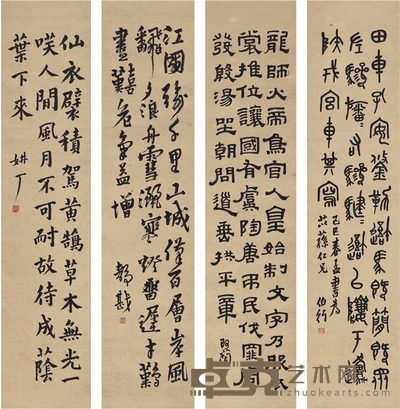 田車孔安鋚勒
左驂旛旛右驂騝騝
宮車其寫 乙巳春孟書為
仁兄 伯行
龍師火帝鳥官人皇始制文字乃服衣
裳推位讓國有虞陶唐弔民伐罪周
發殷湯坐朝問道垂拱平章
江國踰千里山城僅百層岸風
翻夕浪舟雪灑寒燈留遲才難
盡艱危氣益增
仙衣襞積駕黃鵠草木無光一
咲人間風月不可耐故待成蔭
葉下來
艺术网